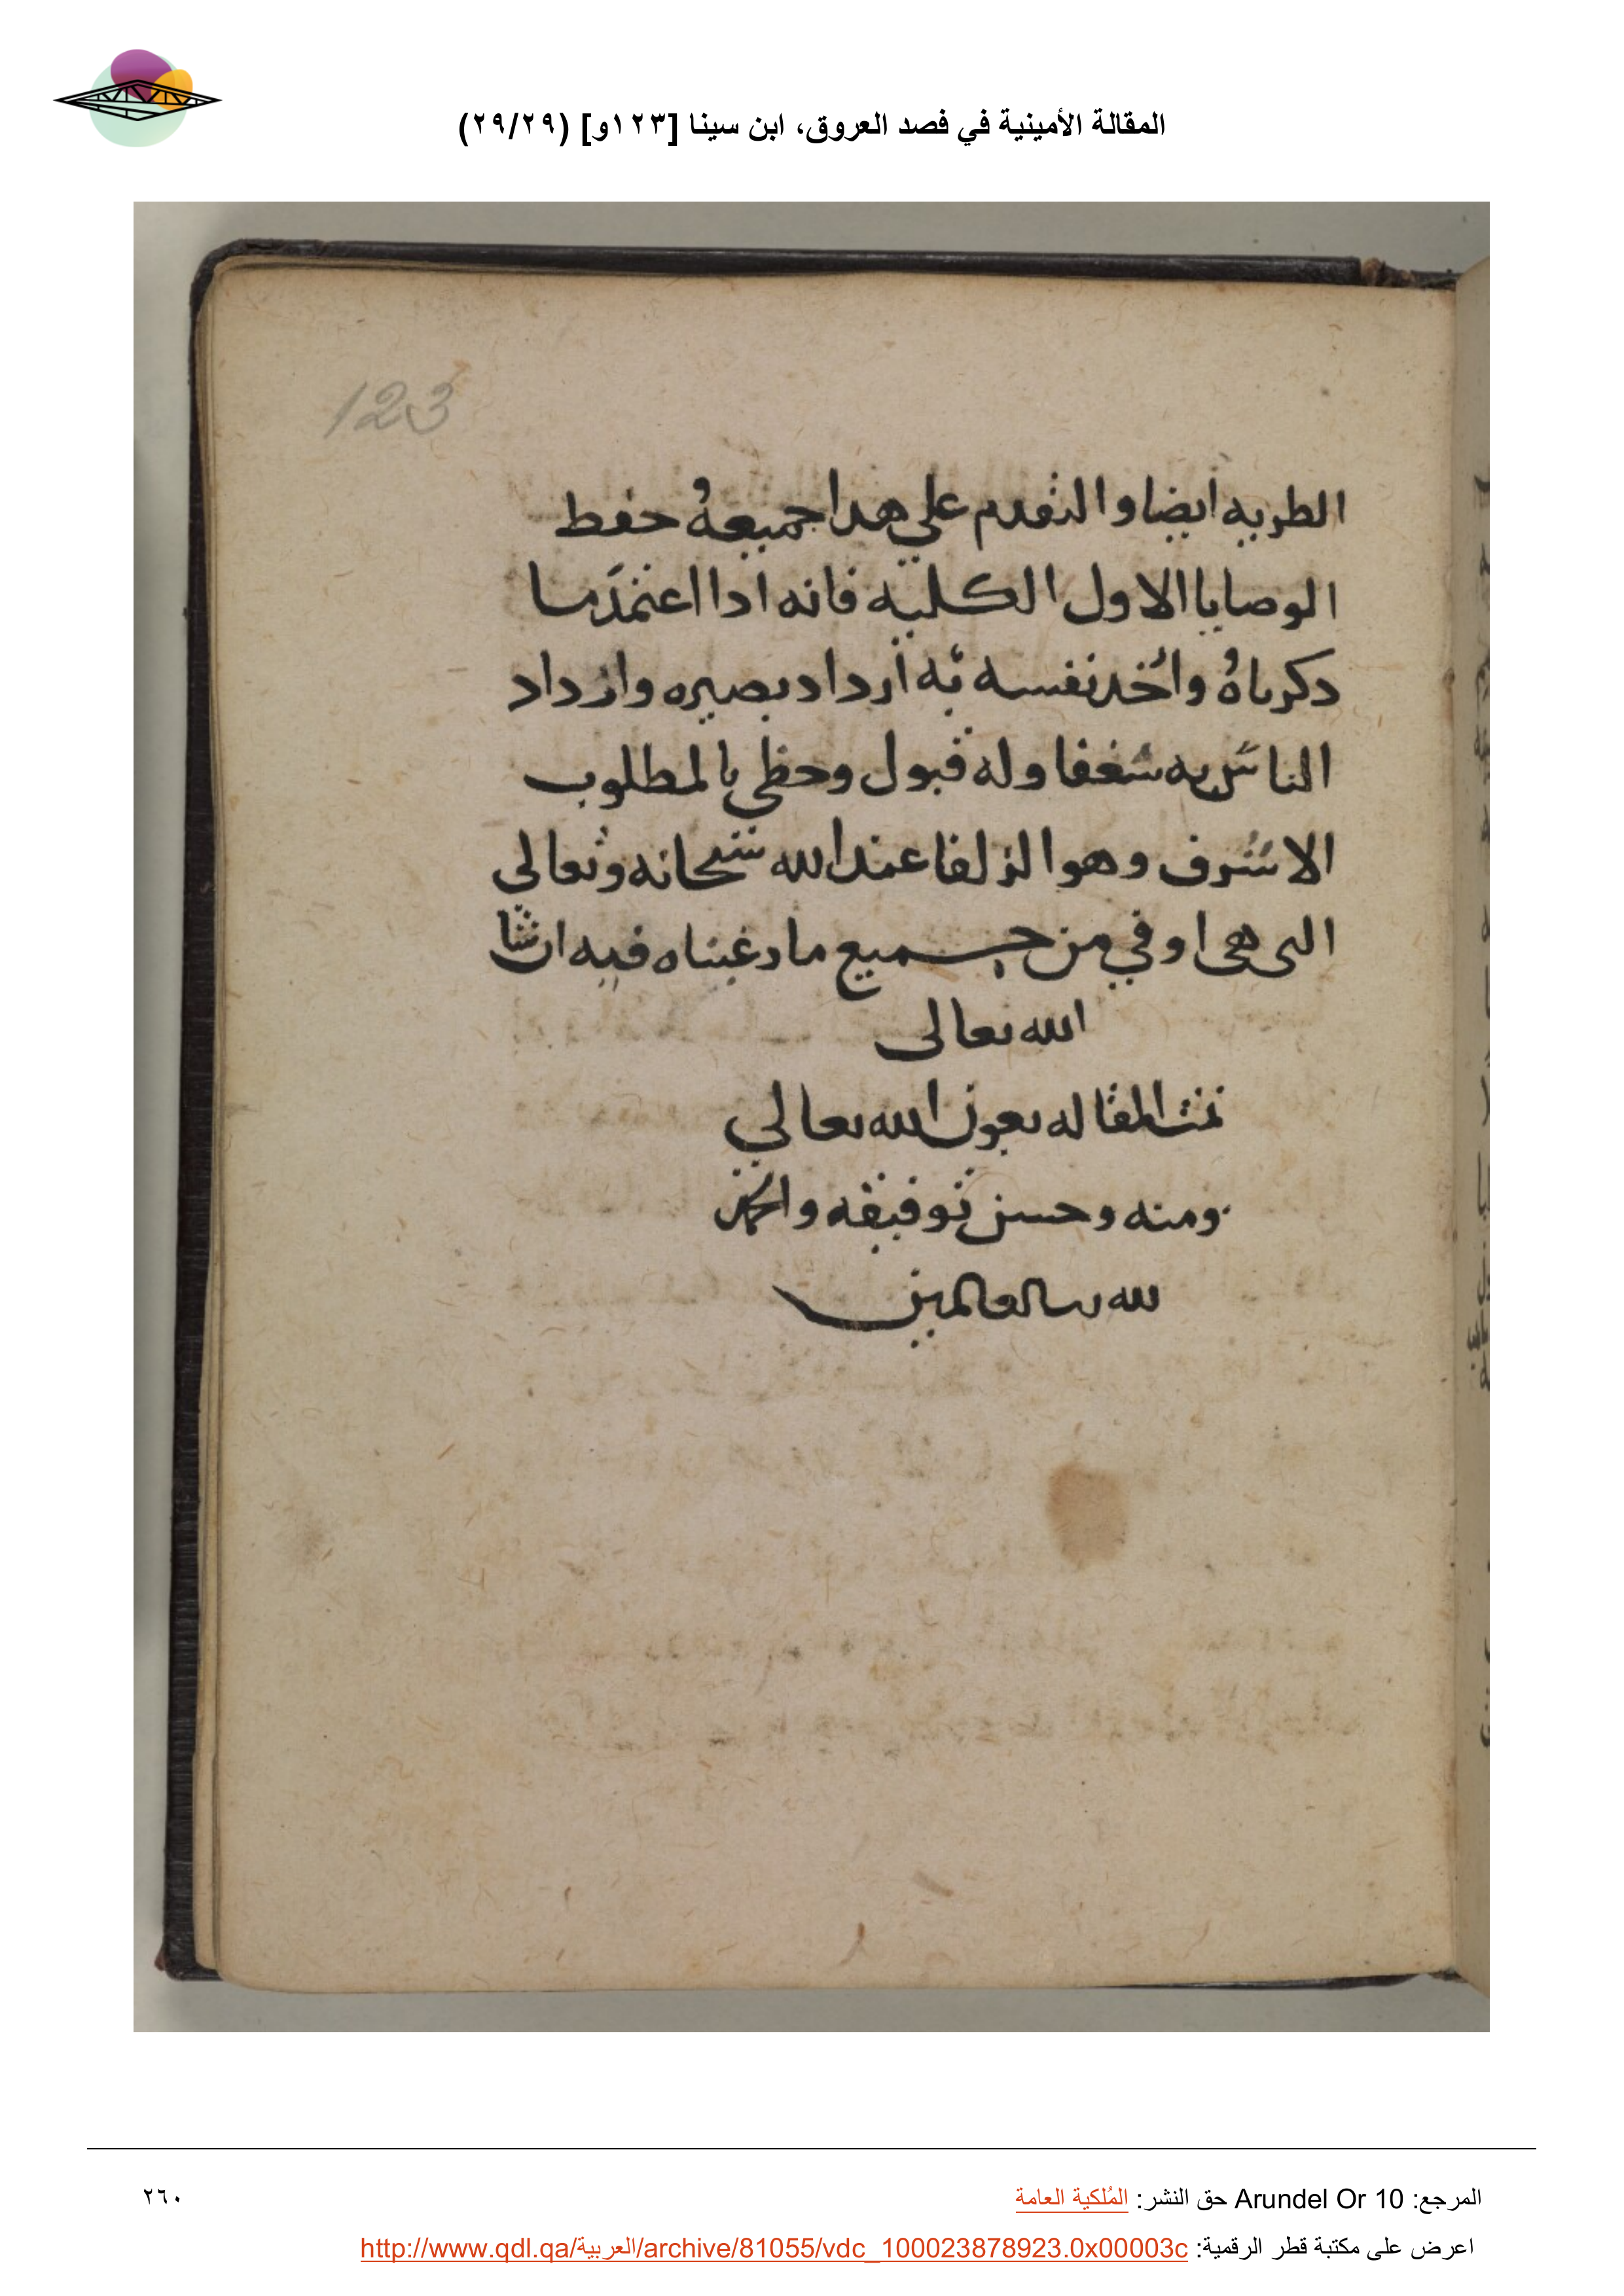 المقالة الأمينية في فصد العروق، ابن سينا [١٢٣و] (٢٩/٢٩)
123
الطريه ايضا والتقدم علي هدا جميعهُ حفط
الوصايا الاول الكليه فانه ادا اعتمد ما
دكرناهُ واخد نفسه به ازداد بصيره وازداد
الناس به شغفا وله قبول وحظي بالمطلوب
الاشرف وهو الزلفا عند الله سبحانه وتعالي
التى هى اوفي من جميع ما رغبناه فيه ان شا
الله تعالى
تمت المقاله بعون الله تعالي
ومنه وحسن توفيقه والحمد
لله رب العالمين
المرجع: Arundel Or 10 حق النشر: المُلكية العامة
٢٦٠
اعرض على مكتبة قطر الرقمية: http://www.qdl.qa/العربية/archive/81055/vdc_100023878923.0x00003c